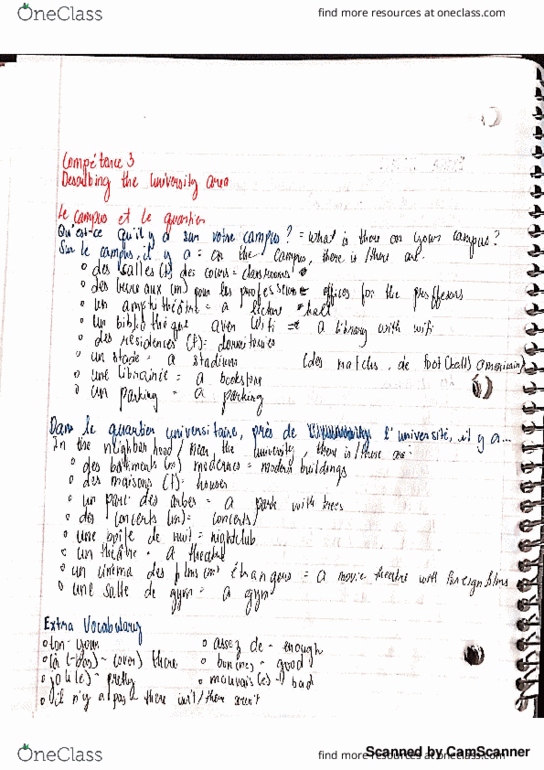 OneClass
find more resources at oneclass.com
Compétence 3
Describing the university area
Le campus et le quartier
Qu'est-ce qu'il y a sur votre campus? = what is there on your campus?
Sur le campus, il y a = on the campus, there is/there are:
des salles (f) des cours = classrooms
des bureaux (m) pour les professeurs = offices for the proffesors
un amphithéâtre = a lecture hall
un bibliothéque avec wifi = a library with wifi
des résidences (f): dormitories
un stade = a stadium (des matchs de football) américain)
une librairie = a bookstore
un parking = a parking
Dans le quartier universitaire, près de l'université, il y a...
In the neighborhood / near the university, there is/there are:
des bâtiments (m) modernes = modern buildings
des maisons (f): houses
un parc des arbes = a park with trees
des concerts (m) = concerts
une boîte de nuit = nightclub
un théâtre = a theatre
un cinéma des films (m) étrangers = a movie theatre with foreign films
une salle de gym = a gym
Extra Vocabulary
ton - your
là (-bas) - (over) there
joli(e) - pretty
il n'y a pas = there isn't/there aren't
assez de - enough
bon(ne) - good
mauvais(e) - bad
OneClass
find more resources at oneclass.com
Scanned by CamScanner